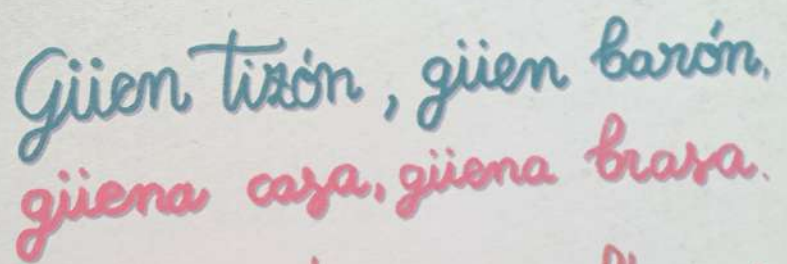 Güen tizón, güen barón,
güena casa, güena brasa.